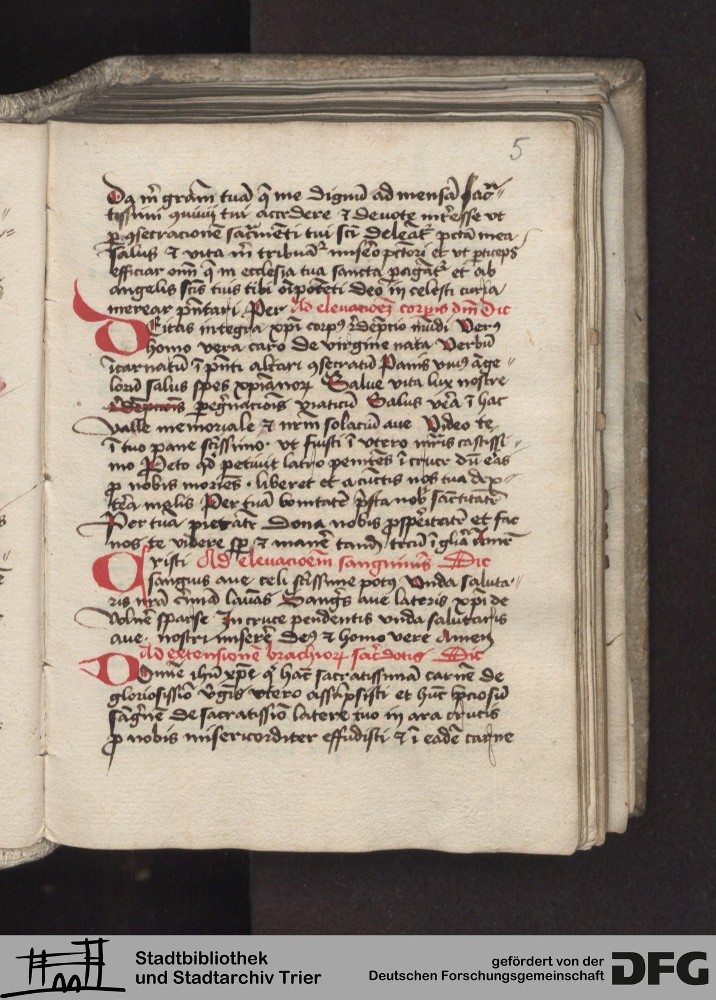 5
Da m̄ gram̄ tuā q̄ me dignū ad mensā sacͣ
tissimi ɔuiuij tui accedere ⁊ devote int̄esse vt
ꝑ ɔsecracionē sacͣmēti tui sc̄i deleāt᷑ pctā mea
salus ⁊ vita m̄ tribuāt᷑ misēo pctori et vt ꝑticeps
efficiar om̄ q̄ in ecclesia tua sancta ꝑagāt᷑ et ab
angelis sc̄is tuis tibi oīpotēti deo in celesti curia
merear p̄ntari. Per Ad elevacioēꝫ corꝑis dm̄ Dic
DEitas integra xp̄i corpꝰ rēdēpcio mūdi Verꝰ
homo vera caro de virgine nata Verbū
īcarnatū ī p̄nti altari ɔsecratū Panis viuꝰ āge
lorū salus spes xp̄ianoꝝ Salue vita lux nostre
rēdēpciōis ꝑeg̉naciōis viaticū Salus vēa ī hac
valle memoriale ⁊ nr̄m solaciū aue Video te
ī tuo pane sc̄issimo. vt fuisti ī vtero mr̄is castissi
mo Peto qd̄ petiuit latro penitēs ī cruce dū eas
ꝓ nobis moriēs. liberet et a cunctis nos tua dex
tēa malis Per tuā bonitatē p̄sta nob̄ sanctitatē
Per tuā pietatē dona nobis ꝓsꝑitatē et fac
nos te videre sp̄ ⁊ manē tandē tecū ī gl̄ia Amē
Cristi Ad elevacioēm sanguinis Dic
sangwis aue celi sc̄issime potꝰ Vnda saluta
ris nr̄ā c̄imīa lauās Sang̉s aue lateris xp̄i de
volnē sparse In cruce pendentis vnda salutaris
aue. nostri miserē deꝰ ⁊ homo vere Amen
Ad extensionē brachioꝝ sac̄dotis Dic
Domine ihū xp̄e qͥ hāc sacratissimā carnē de
gloriosissīo v̉gīs vtero assūpsisti et hūc p̄ciosū
sāg̉nē de sacratissīo latere tuo in ara crucis
ꝓ nobis misericorditer effudisti ⁊ ī eadē carne
Stadtbibliothek
und Stadtarchiv Trier
gefördert von der
Deutschen Forschungsgemeinschaft
DFG